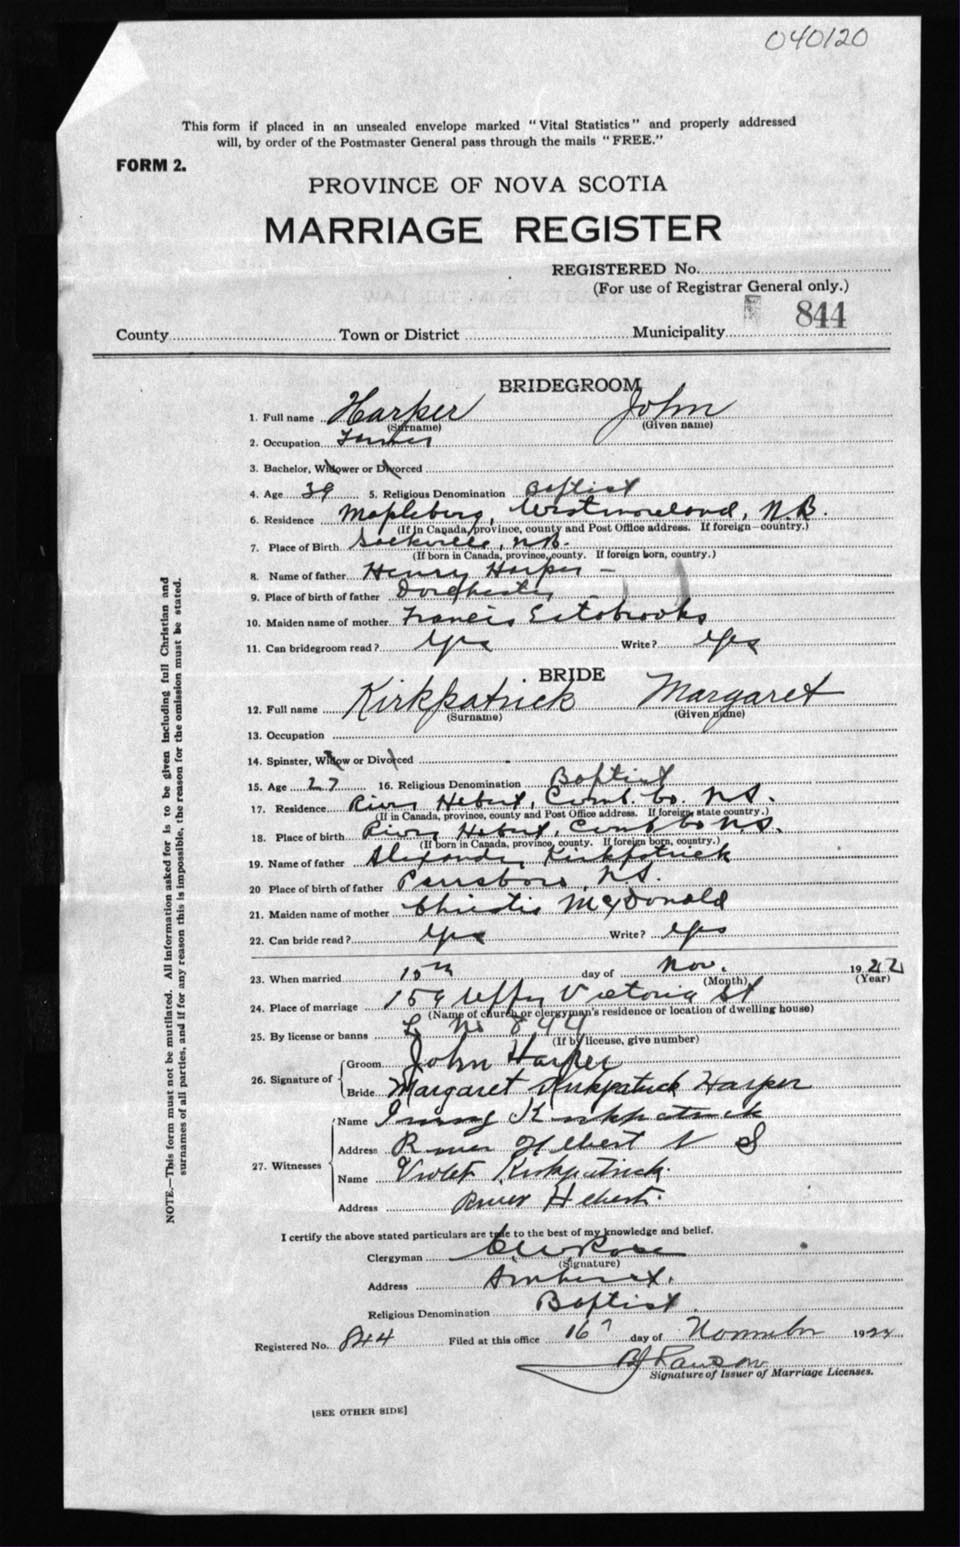 040120
This form if placed in an unsealed envelope marked "Vital Statistics" and properly addressed
will, by order of the Postmaster General pass through the mails "FREE."
FORM 2.
PROVINCE OF NOVA SCOTIA
MARRIAGE REGISTER
REGISTERED No.
(For use of Registrar General only.)
844
County Town or District Municipality
BRIDEGROOM
1. Full name Harper John
(Surname) (Given name)
2. Occupation Farmer
3. Bachelor, Widower or Divorced
4. Age 39 5. Religious Denomination Baptist
6. Residence Westmoreland, N.B.
(If in Canada, province, county and Post Office address. If foreign—country.)
7. Place of Birth Sackville, N.B.
(If born in Canada, province, county. If foreign born, country.)
8. Name of father Henry Harper –
9. Place of birth of father Dorchester
10. Maiden name of mother Francis Estabrooks
11. Can bridegroom read? Yes Write? Yes
BRIDE
12. Full name Kirkpatrick Margaret
(Surname) (Given name)
13. Occupation
14. Spinster, Widow or Divorced
15. Age 27 16. Religious Denomination Baptist
17. Residence River Hebert, Cumb. Co. N.S.
(If in Canada, province, county and Post Office address. If foreign, state country.)
18. Place of birth River Hebert, Cumb Co N.S.
(If born in Canada, province, county. If foreign born, country.)
19. Name of father Alexander Kirkpatrick
20 Place of birth of father Parrsboro, N.S.
21. Maiden name of mother Christie McDonald
22. Can bride read? Yes Write? Yes
23. When married 15th day of Nov. 1922
(Month) (Year)
24. Place of marriage 159 Victoria St
(Name of church or clergyman's residence or location of dwelling house)
25. By license or banns L No 844
(If by license, give number)
26. Signature of
Groom John Harper
Bride Margaret Kirkpatrick Harper
27. Witnesses
Name Kirkpatrick
Address River Hebert N S
Name Violet Kirkpatrick.
Address River Hebert.
I certify the above stated particulars are true to the best of my knowledge and belief.
Clergyman Rose
(Signature)
Address Amherst.
Religious Denomination Baptist.
Registered No. 844 Filed at this office 16 day of November 1922
Signature of Issuer of Marriage Licenses.
[SEE OTHER SIDE]
NOTE.—This form must not be mutilated. All information asked for is to be given including full Christian and
surnames of all parties, and if for any reason this is impossible, the reason for the omission must be stated.